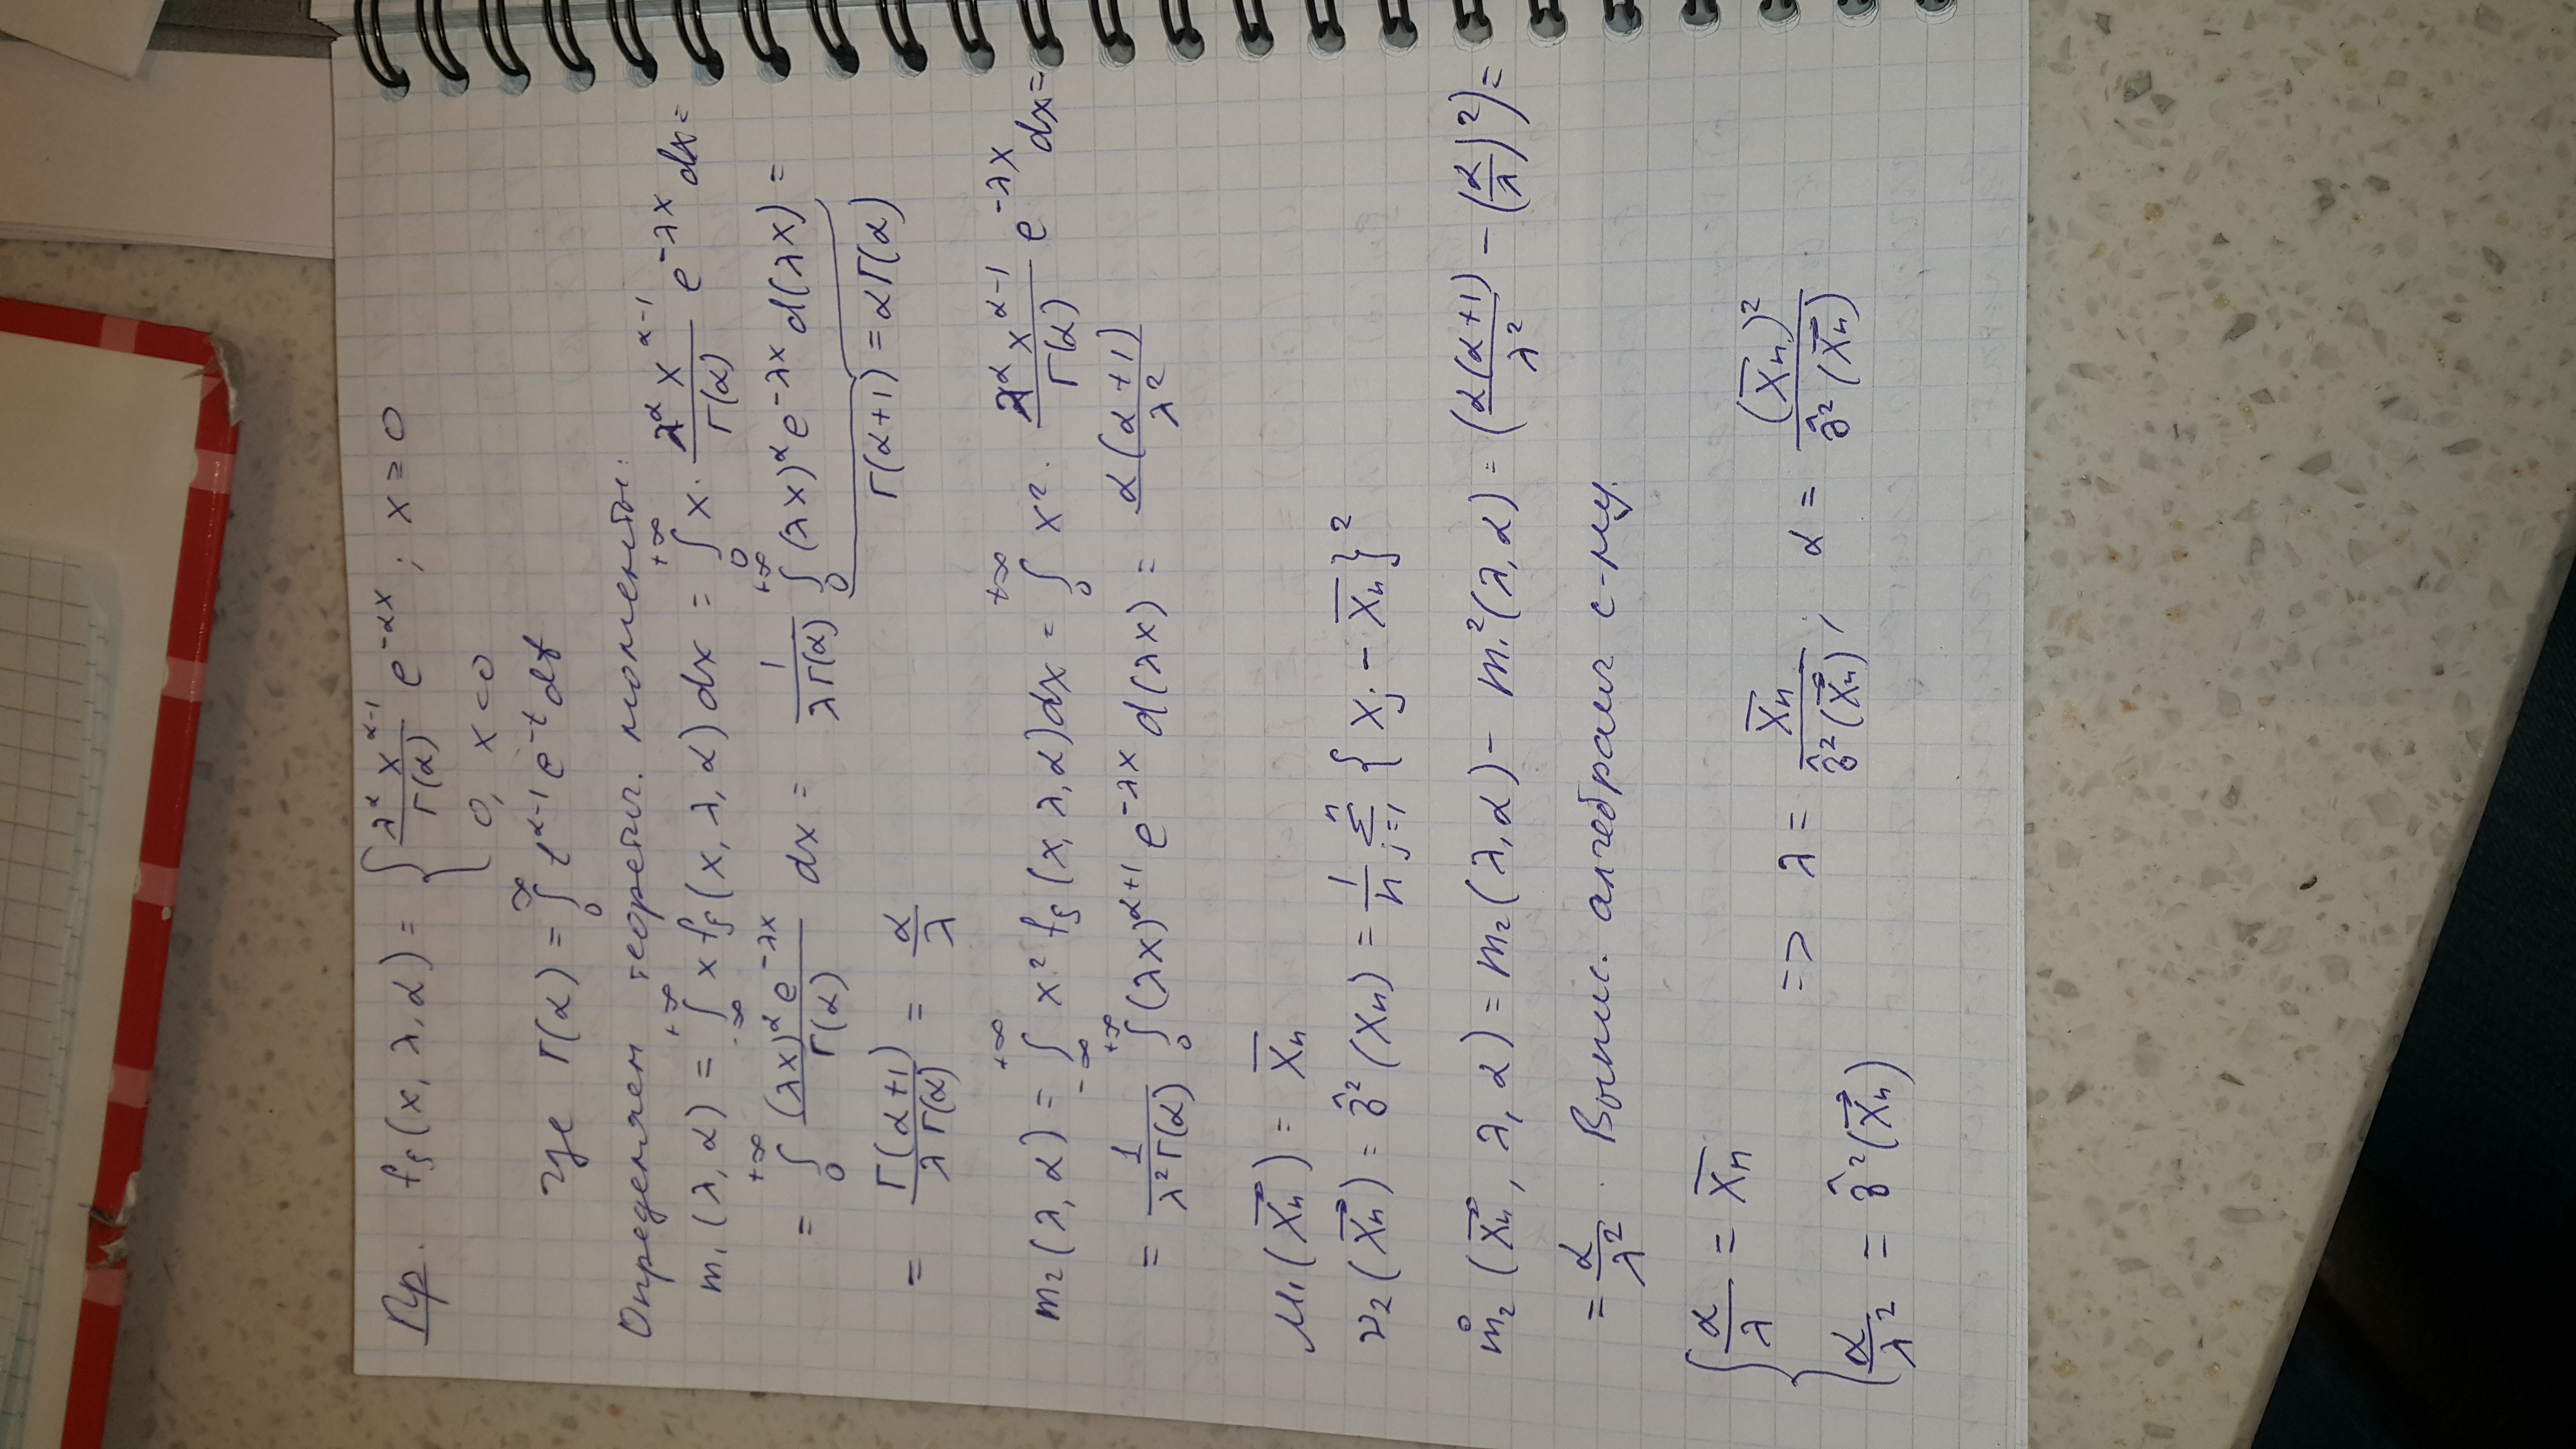 Пр. fξ(x, λ, α) = { λ^α x^(α-1) / Γ(α) e^(-αx) ; x ≥ 0
0, x < 0
где Γ(α) = ∫₀^∞ t^(α-1) e^(-t) dt
Определяем теоретич. моменты:
m₁(λ, α) = ∫_{-∞}^{+∞} x fξ(x, λ, α) dx = ∫₀^{+∞} x · λ^α x^(α-1) / Γ(α) e^(-λx) dx =
= ∫₀^{+∞} (λx)^α e^(-λx) / Γ(α) dx = 1 / λΓ(α) ∫₀^{+∞} (λx)^α e^(-λx) d(λx) =
Γ(α+1) = αΓ(α)
= Γ(α+1) / λΓ(α) = α / λ
m₂(λ, α) = ∫_{-∞}^{+∞} x² fξ(x, λ, α) dx = ∫₀^{+∞} x² · λ^α x^(α-1) / Γ(α) e^(-λx) dx =
= 1 / λ²Γ(α) ∫₀^{+∞} (λx)^(α+1) e^(-λx) d(λx) = α(α+1) / λ²
μ₁(X⃗n) = X̅n
ν₂(X⃗n) = σ̂²(Xn) = 1/n Σ_{j=1}^{n} {Xj - X̅n}²
m̊₂(X⃗n, λ, α) = m₂(λ, α) - m₁²(λ, α) = (α(α+1) / λ² - (α/λ)²) =
= α / λ². Выпис. алгебраич с-му.
{ α / λ = X̅n
=> λ = X̅n / σ̂²(X⃗n) ; α = (X̅n)² / σ̂²(X⃗n)
α / λ² = σ̂²(X⃗n)